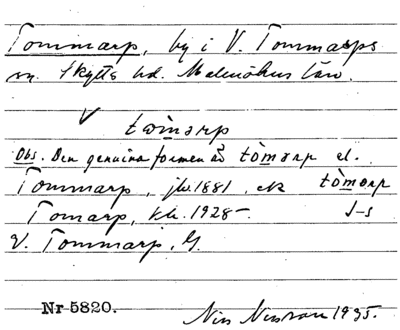 Tommarp, by i V. Tommarps
sn. Skytts hd. Malmöhus län.
tòmarp
Obs. Den genuina formen är tòmarp el.
Tommarp, jb. 1881, ek tòmarp
Tomarp, kb. 1928 J-s
V. Tommarp, G.
Nr 5820. 1935.